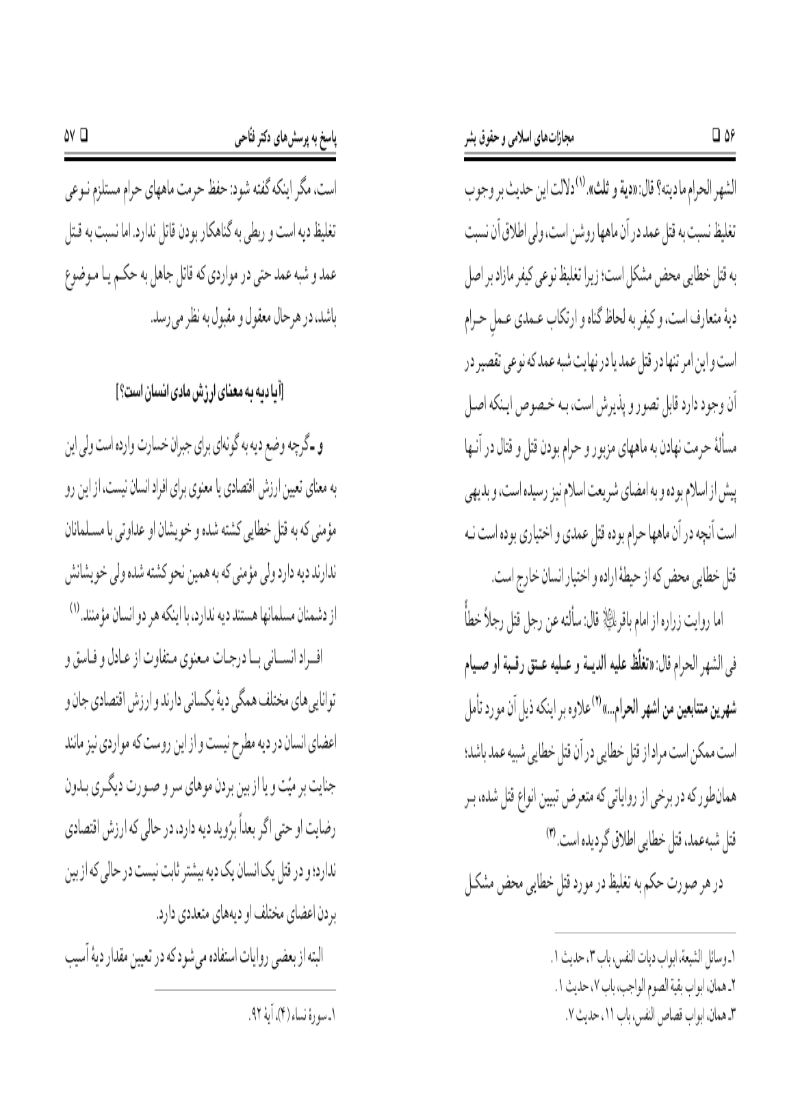 ۵۶ □ مجازات‌های اسلامی و حقوق بشر
الشهر الحرام ما دیته؟ قال: «دیة و ثلث».(۱) دلالت این حدیث بر وجوب
تغلیظ نسبت به قتل عمد در آن ماهها روشن است، ولی اطلاق آن نسبت
به قتل خطایی محض مشکل است؛ زیرا تغلیظ نوعی کیفر مازاد بر اصل
دیۀ متعارف است، و کیفر به لحاظ گناه و ارتکاب عـمدی عـملِ حـرام
است و این امر تنها در قتل عمد یا در نهایت شبه عمد که نوعی تقصیر در
آن وجود دارد قابل تصور و پذیرش است، بـه خـصوص ایـنکه اصـل
مسألۀ حرمت نهادن به ماههای مزبور و حرام بودن قتل و قتال در آنـها
پیش از اسلام بوده و به امضای شریعت اسلام نیز رسیده است، و بدیهی
است آنچه در آن ماهها حرام بوده قتل عمدی و اختیاری بوده است نـه
قتل خطایی محض که از حیطۀ اراده و اختیار انسان خارج است.
اما روایت زراره از امام باقر(ع) قال: سألته عن رجل قتل رجلاً خطأً
فی الشهر الحرام قال: «تغلّظ علیه الدیـة و عـلیه عـتق رقـبة او صـیام
شهرین متتابعین من اشهر الحرام...»(۲) علاوه بر اینکه ذیل آن مورد تأمل
است ممکن است مراد از قتل خطایی در آن قتل خطایی شبیه عمد باشد؛
همان‌طور که در برخی از روایاتی که متعرض تبیین انواع قتل شده، بـر
قتل شبه‌عمد، قتل خطایی اطلاق گردیده است.(۳)
در هر صورت حکم به تغلیظ در مورد قتل خطایی محض مشکـل
۱ـ وسائل الشیعة، ابواب دیات النفس، باب ۳، حدیث ۱.
۲ـ همان، ابواب بقیة الصوم الواجب، باب ۷، حدیث ۱.
۳ـ همان، ابواب قصاص النفس، باب ۱۱، حدیث ۷.
پاسخ به پرسش‌های دکتر فتّاحی □ ۵۷
است، مگر اینکه گفته شود: حفظ حرمت ماههای حرام مستلزم نـوعی
تغلیظ دیه است و ربطی به گناهکار بودن قاتل ندارد. اما نسبت به قـتل
عمد و شبه عمد حتی در مواردی که قاتل جاهل به حکـم یـا مـوضوع
باشد، در هرحال معقول و مقبول به نظر می‌رسد.
[آیا دیه به معنای ارزش مادی انسان است؟]
و ـ گرچه وضع دیه به گونه‌ای برای جبران خسارت وارده است ولی این
به معنای تعیین ارزش اقتصادی یا معنوی برای افراد انسان نیست، از این رو
مؤمنی که به قتل خطایی کشته شده و خویشان او عداوتی با مسـلمانان
ندارند دیه دارد ولی مؤمنی که به همین نحو کشته شده ولی خویشانش
از دشمنان مسلمانها هستند دیه ندارد، با اینکه هر دو انسان مؤمنند.(۱)
افـراد انسـانی بـا درجـات مـعنوی مـتفاوت از عـادل و فـاسق و
توانایی‌های مختلف همگی دیۀ یکسانی دارند و ارزش اقتصادی جان و
اعضای انسان در دیه مطرح نیست و از این روست که مواردی نیز مانند
جنایت بر میّت و یا از بین بردن موهای سر و صـورت دیگـری بـدون
رضایت او حتی اگر بعداً بروید دیه دارد، در حالی که ارزش اقتصادی
ندارد؛ و در قتل یک انسان یک دیه بیشتر ثابت نیست در حالی که از بین
بردن اعضای مختلف او دیه‌های متعددی دارد.
البته از بعضی روایات استفاده می‌شود که در تعیین مقدار دیۀ آسیب
۱ـ سورۀ نساء (۴)، آیۀ ۹۲.